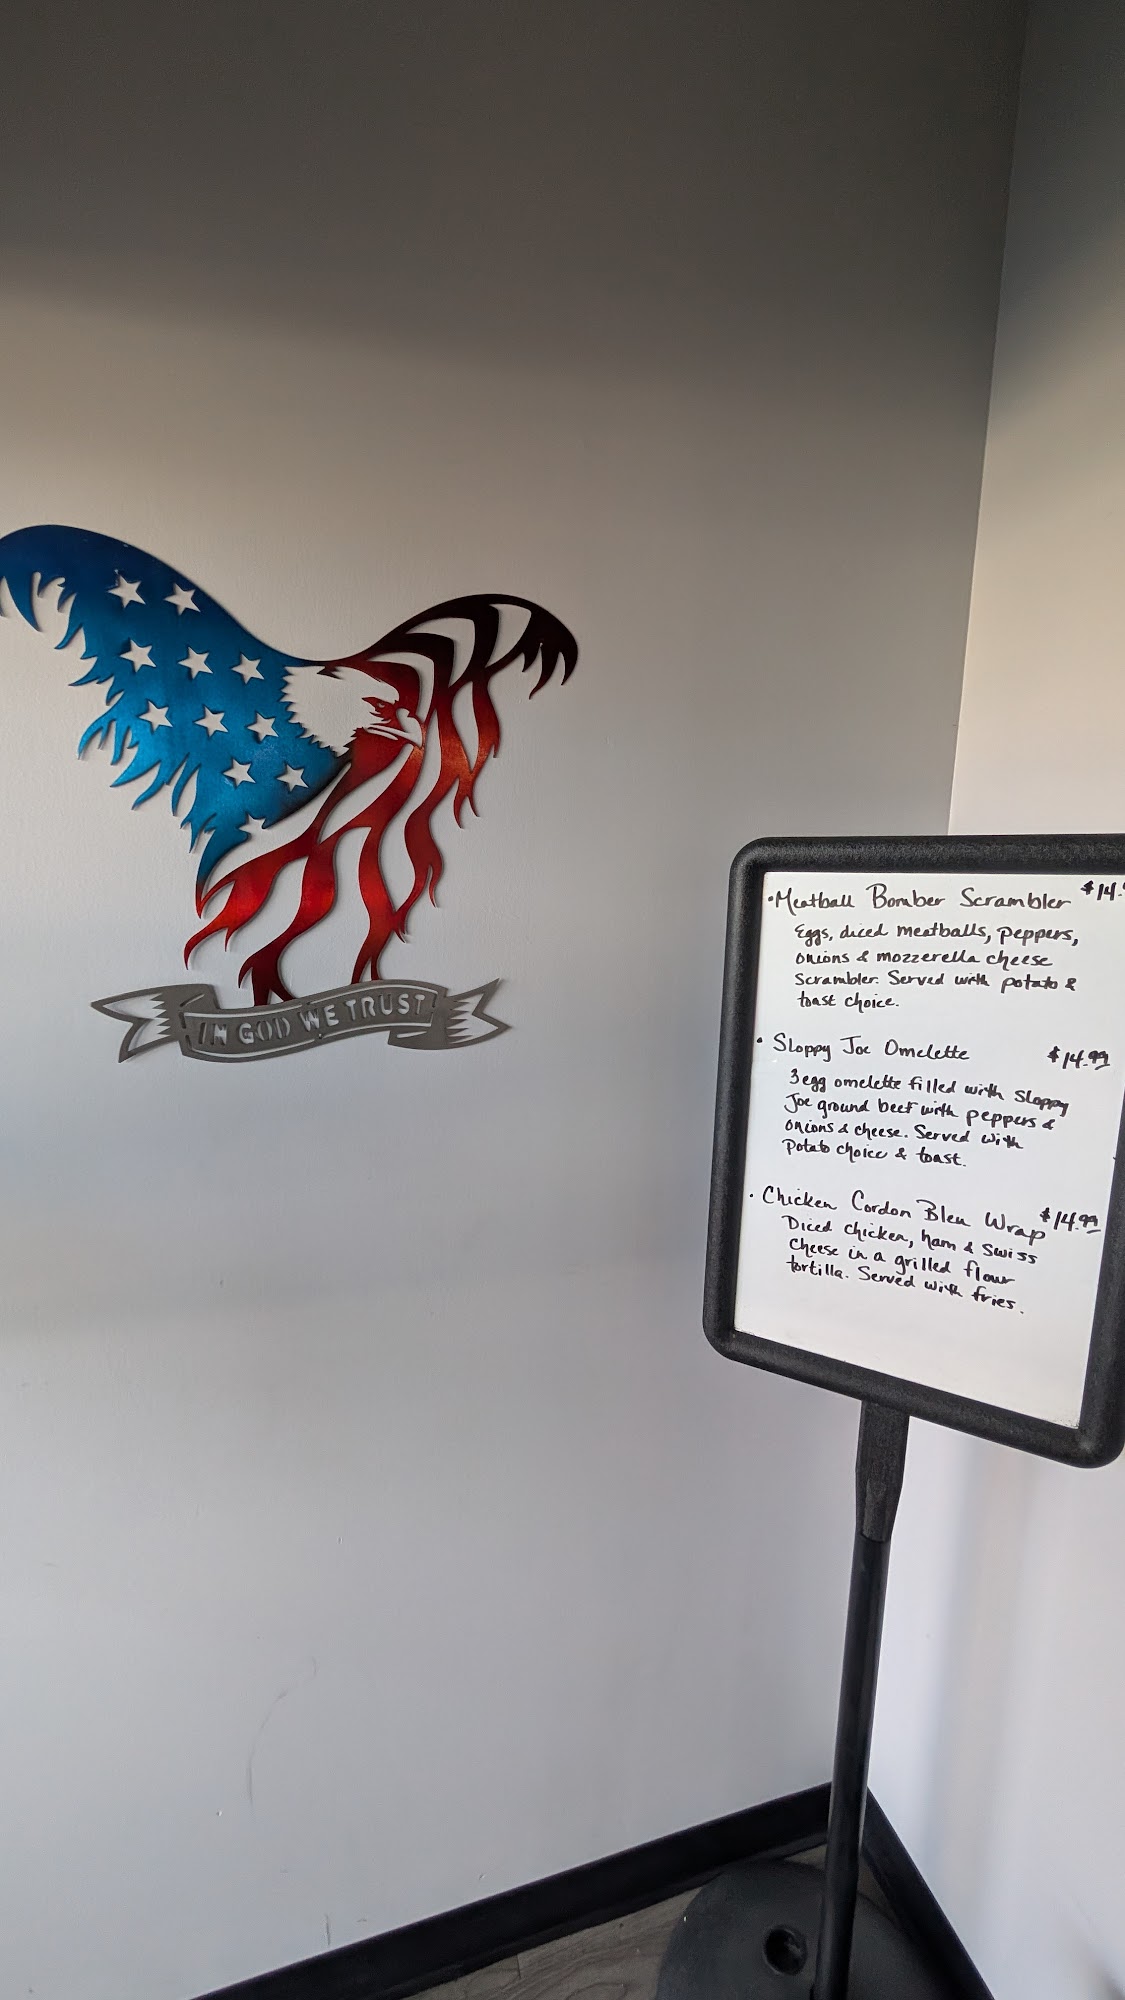 IN GOD WE TRUST
• Meatball Bomber Scrambler $14.
Eggs, diced meatballs, peppers,
onions & mozzerella cheese
Scrambler. Served with potato &
toast choice.
• Sloppy Joe Omelette $14.99
3 egg omelette filled with sloppy
Joe ground beef with peppers &
onions & cheese. Served with
potato choice & toast.
• Chicken Cordon Bleu Wrap $14.99
Diced chicken, ham & Swiss
cheese in a grilled flour
tortilla. Served with fries.